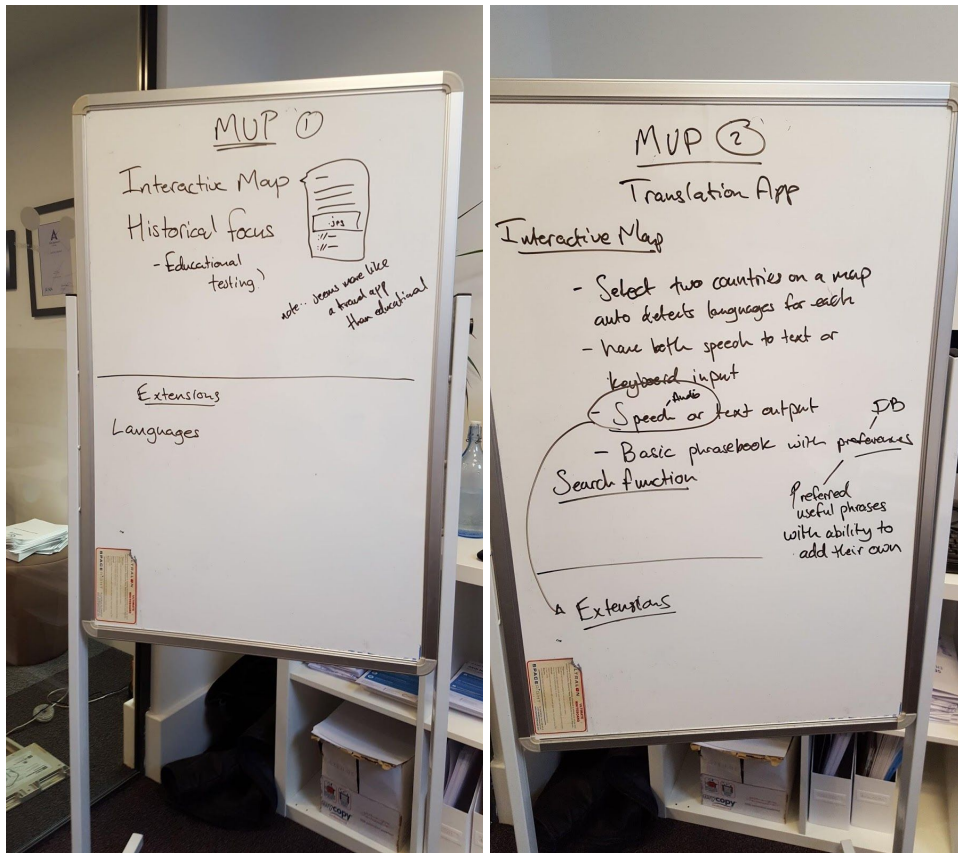 MVP 1
Interactive Map
.jpg
Historical focus
- Educational
testing
note.. seems more like
a travel app
than educational
Extensions
Languages
MVP 2
Translation App
Interactive Map
- Select two countries on a map
auto detects languages for each
- have both speech to text or
keyboard input
Audio
- Speech or text output
DB
- Basic phrasebook with preferences
Search function
Preferred
useful phrases
with ability to
add their own
Extensions
copy